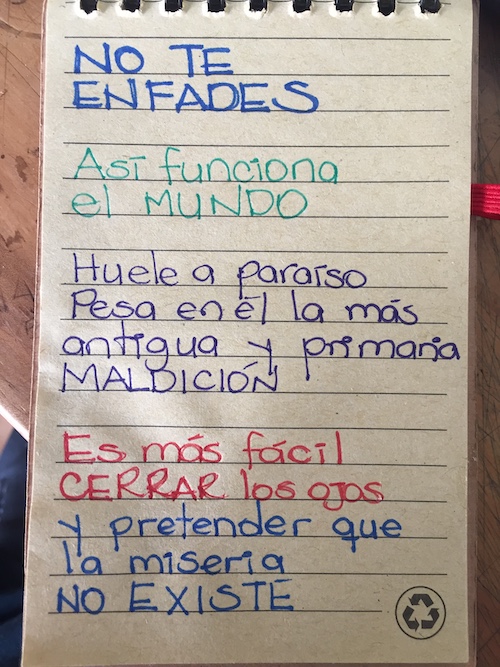 NO TE
ENFADES
Así funciona
el MUNDO
Huele a paraíso
Pesa en él la más
antigua y primaria
MALDICIÓN
Es más fácil
CERRAR los ojos
y pretender que
la miseria
NO EXISTE